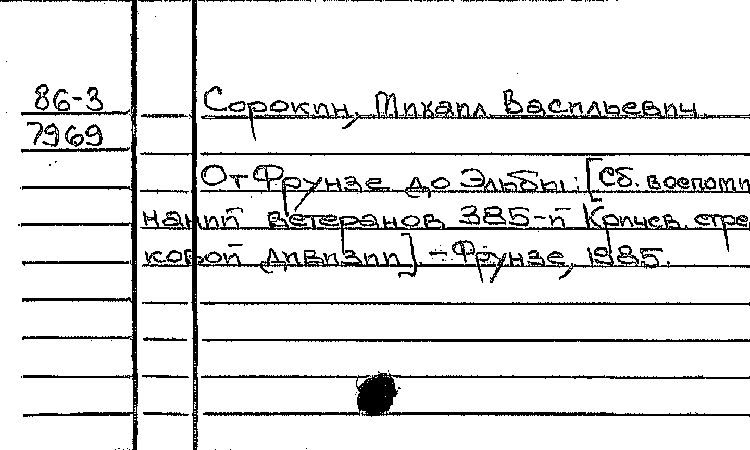 86-3
7969
Сорокин, Михаил Васильевич
От Фрунзе до Эльбы: [Сб. воспоми
наний ветеранов 385-й Кричев. стре
ковой дивизии]. – Фрунзе, 1985.